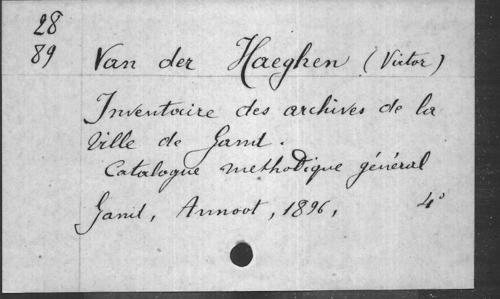 28
89 Van der Haeghen (Victor)
Inventaire des archives de la
Ville de Gand.
Catalogue methodique général
Gand, Annoot, 1896, 4°